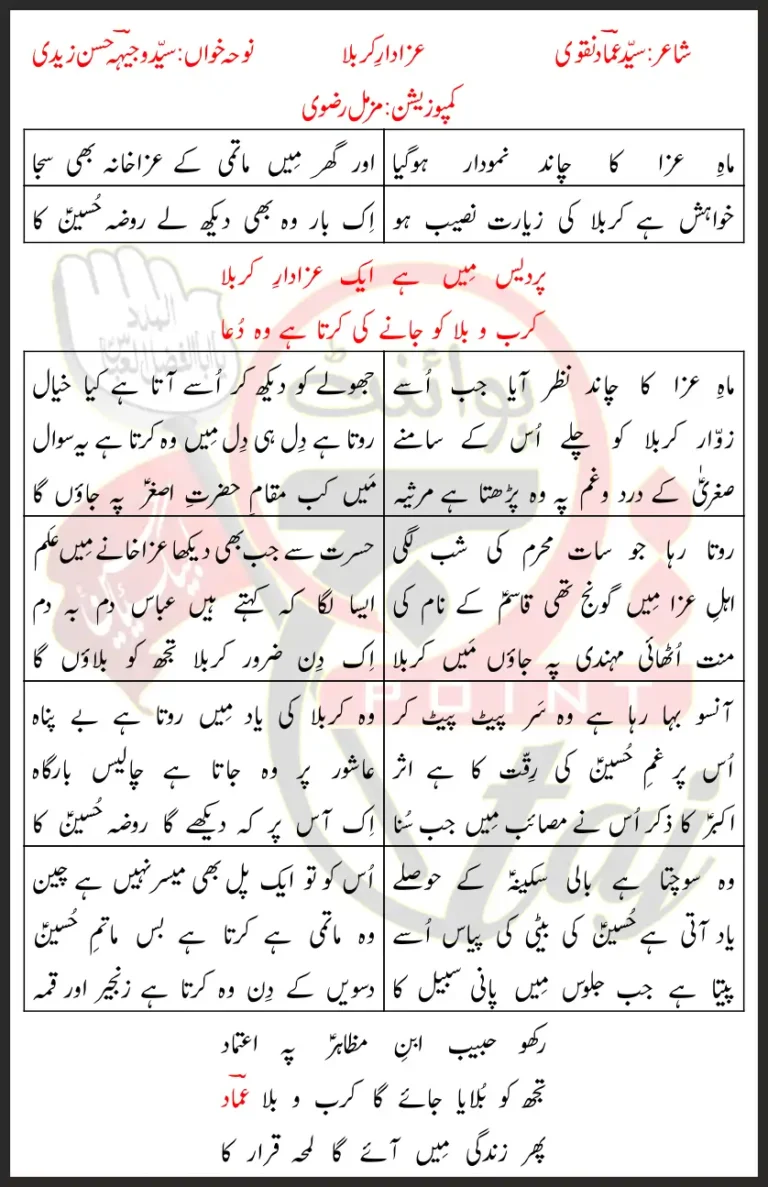 شاعر: سیّد عمادؔ نقوی
عزادارِ کربلا
نوحہ خواں: سیّد وجیہہ حسن زیدی
کمپوزیشن: مزمل رضوی
ماہِ عزا کا چاند نمودار ہوگیا
اور گھر مِیں ماتمی کے عزاخانہ بھی سجا
خواہش ہے کربلا کی زیارت نصیب ہو
اِک بار وہ بھی دیکھ لے روضہ حُسینؑ کا
پردیس مِیں ہے ایک عزادارِ کربلا
کرب و بلا کو جانے کی کرتا ہے وہ دُعا
ماہِ عزا کا چاند نظر آیا جب اُسے
زوّار کربلا کو چلے اُس کے سامنے
صغریٰؑ کے درد وغم پہ وہ پڑھتا ہے مرثیہ
جھولے کو دیکھ کر اُسے آتا ہے کیا خیال
روتا ہے دِل ہی دِل مِیں وہ کرتا ہے یہ سوال
مَیں کب مقامِ حضرتِ اصغرؑ پہ جاؤں گا
روتا رہا جو سات محرم کی شب لگی
اہلِ عزا مِیں گونج تھی قاسمؑ کے نام کی
منت اُٹھائی مہندی پہ جاؤں مَیں کربلا
حسرت سے جب بھی دیکھا عزاخانے مِیں عَلَم
ایسا لگا کہ کہتے ہیں عباس دم بہ دم
اِک دِن ضرور کربلا تجھ کو بلاؤں گا
آنسو بہا رہا ہے وہ سَر پیٹ پیٹ کر
اُس پر غمِ حُسینؑ کی رِقّت کا ہے اثر
اکبرؑ کا ذکر اُس نے مصائب مِیں جب سُنا
وہ کربلا کی یاد مِیں روتا ہے بے پناہ
عاشور پر وہ جاتا ہے چالیس بارگاہ
اِک آس پر کہ دیکھے گا روضہ حُسینؑ کا
وہ سوچتا ہے بالی سکینہؑ کے حوصلے
یاد آتی ہے حُسینؑ کی بیٹی کی پیاس اُسے
پیتا ہے جب جلوس مِیں پانی سبیل کا
اُس کو تو ایک پل بھی میسر نہیں ہے چین
وہ ماتمی ہے کرتا ہے بس ماتمِ حُسینؑ
دسویں کے دِن وہ کرتا ہے زنجیر اور قمہ
رکھو حبیب ابنِ مظاہرؑ پہ اعتماد
تجھ کو بُلایا جائے گا کرب و بلا عمادؔ
پھر زندگی مِیں آئے گا لمحہ قرار کا
پوائنٹ
POINT
taj